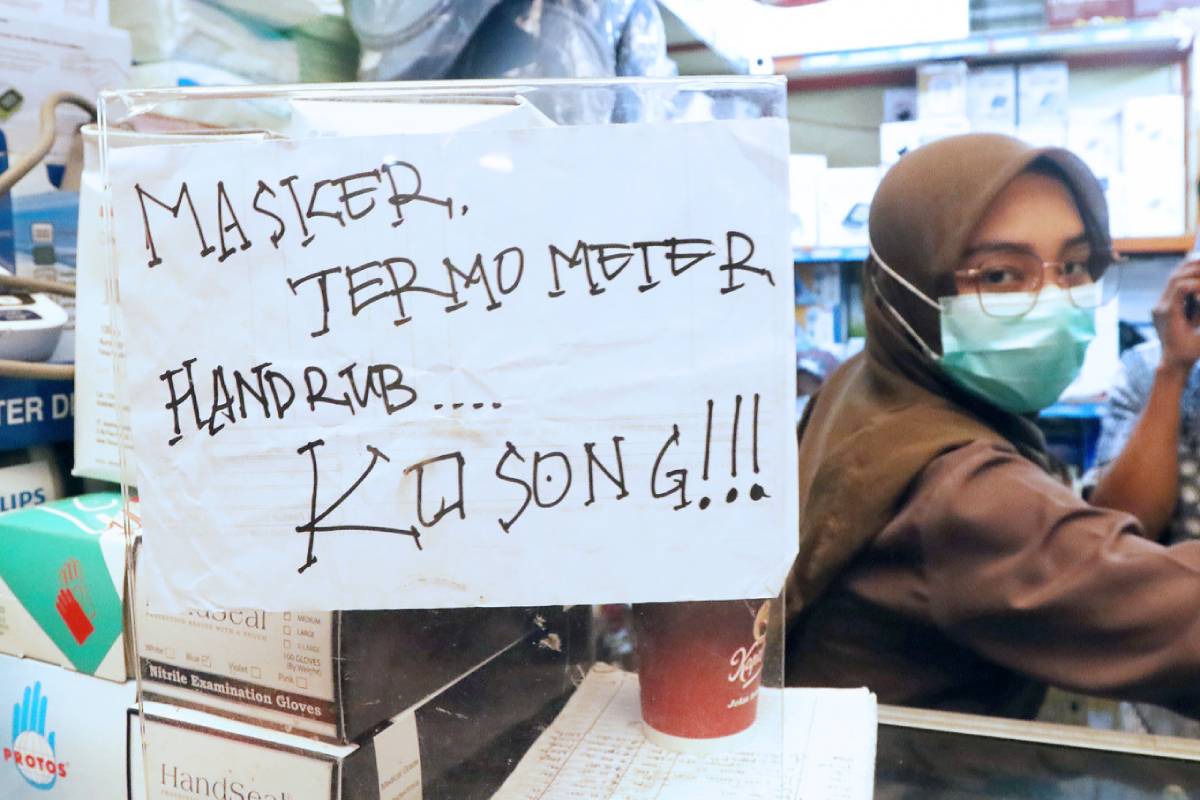 MASKER,
TERMOMETER
HANDRUB ....
KOSONG!!!
TER D
LIPS
HandSeal
MEDIUM
LARGE
X-LARGE
100 GLOVES
(By Weight)
White
Blue
Violet
Pink
Nitrile Examination Gloves
PROTOS
HandSeal